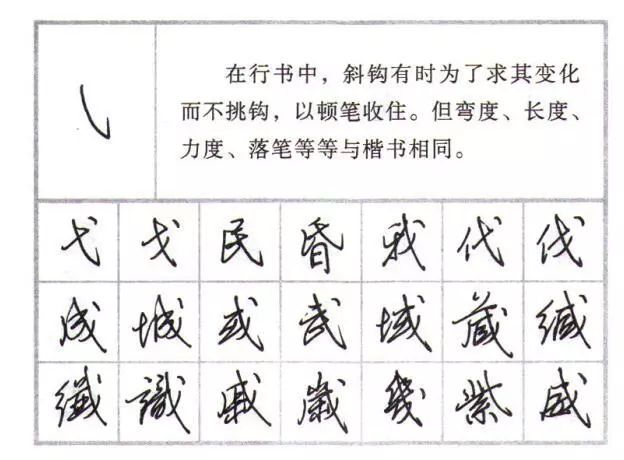 在行书中，斜钩有时为了求其变化
而不挑钩，以顿笔收住。但弯度、长度、
力度、落笔等等与楷书相同。
弋 戈 民 昬 我 代 伐
成 城 或 武 域 藏 缄
識 戚 幾 紫 威